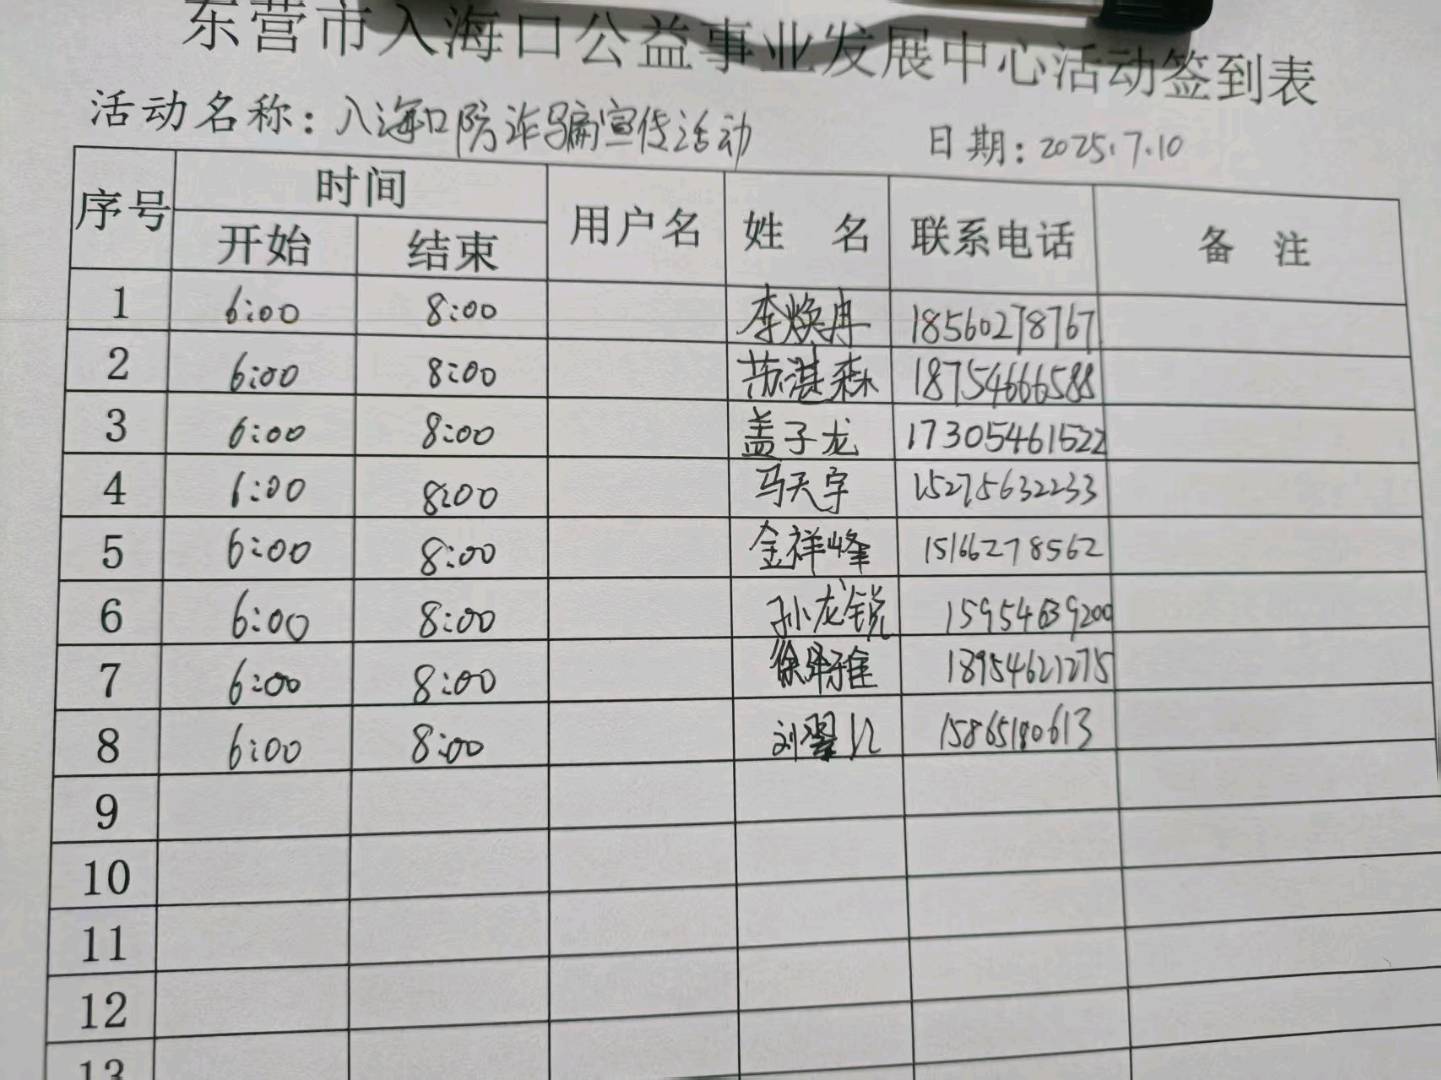 东营市入海口公益事业发展中心活动签到表
活动名称：入海口防诈骗宣传活动 日期：2025.7.10
序号 时间 用户名 姓名 联系电话 备注
开始 结束
1 6:00 8:00 李焕冉 18560278767
2 6:00 8:00 苏湛森 18754666588
3 6:00 8:00 盖子龙 17305461522
4 6:00 8:00 马天宇 15275632233
5 6:00 8:00 金祥峰 15166278562
6 6:00 8:00 孙龙锐 15954639200
7 6:00 8:00 徐 雅 18954621275
8 6:00 8:00 刘翠 15865180613
9
10
11
12
13